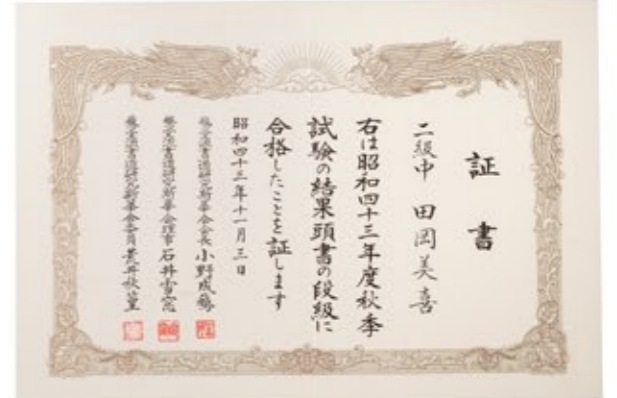 証書
二級中 田岡美喜
右は昭和四十三年度秋季
試験の結果頭書の段級に
合格したことを証します
昭和四十三年十一月三日
会長 小野成鵞
理事 石井雪窓
委員 荒井秋